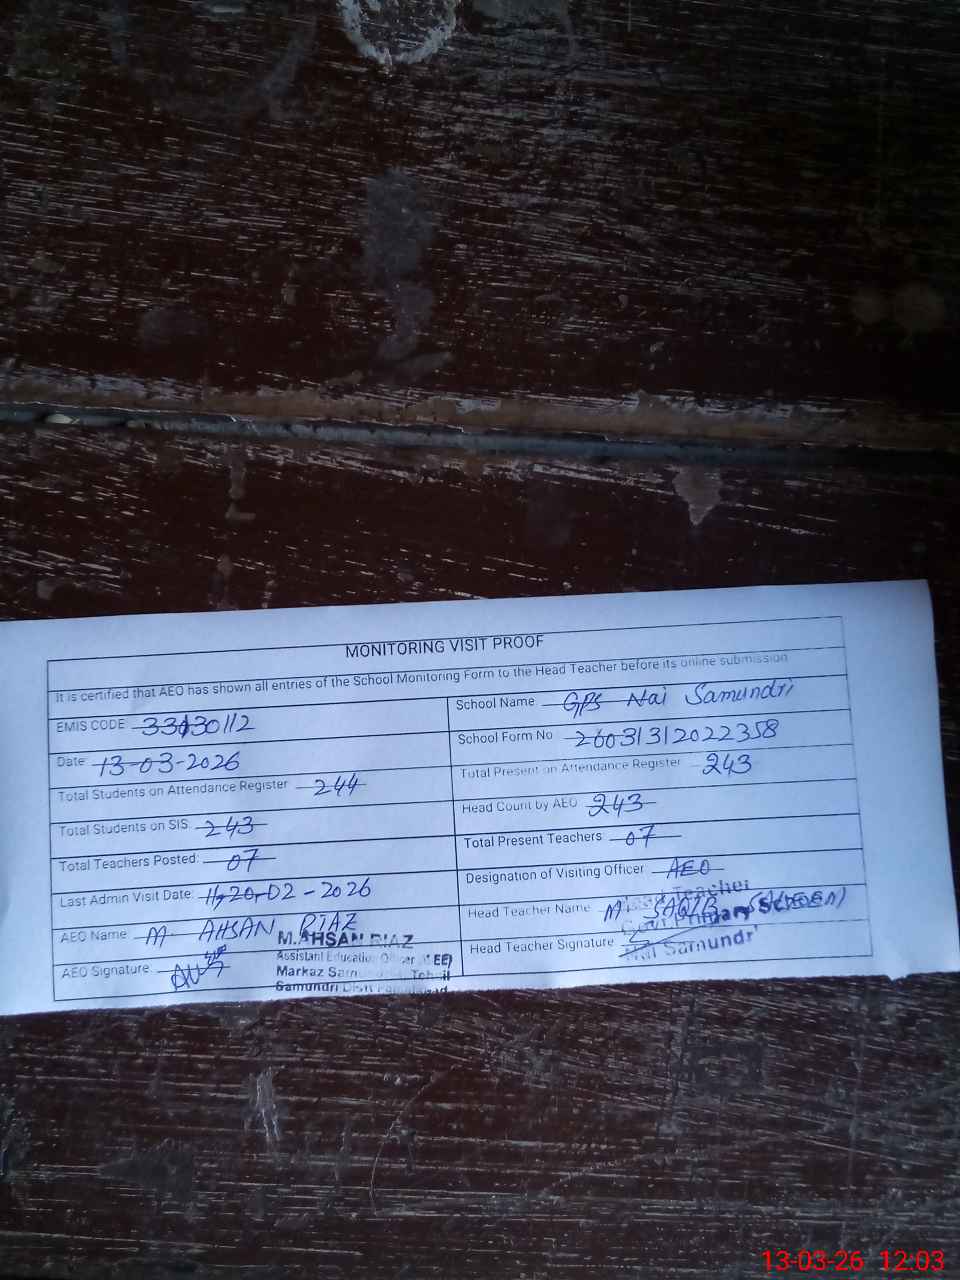 MONITORING VISIT PROOF
It is certified that AEO has shown all entries of the School Monitoring Form to the Head Teacher before its online submission
EMIS CODE 33130112
School Name GPS Nai Samundri
Date: 13-03-2026
School Form No 26031312022358
Total Students on Attendance Register 244
Total Present on Attendance Register 243
Total Students on SIS: 243
Head Count by AEO 243
Total Teachers Posted: 07
Total Present Teachers 07
Last Admin Visit Date: 11,20,02-2026
Designation of Visiting Officer AEO
AEO Name M. AHSAN RIAZ
Head Teacher Name M.
AEO Signature:
Head Teacher Signature
M. AHSAN RIAZ
Assistant Education Officer
Markaz Tehsil
Samundri Distt
Teacher
Govt Primary School
Nai Samundri
13-03-26 12:03